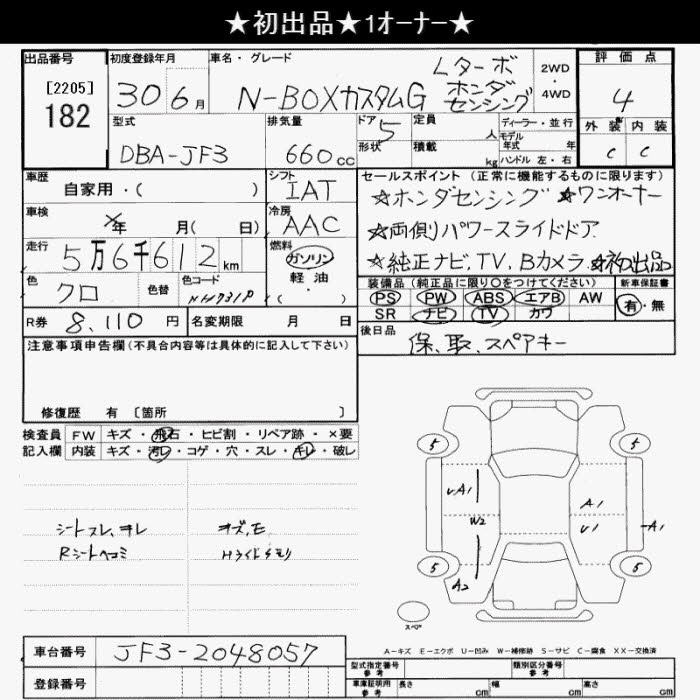 ★初出品★1オーナー★
出品番号
[2205]
182
初度登録年月
30 6月
車名・グレード
N-BOXカスタムG
Lターボ
ホンダ
センシング
2WD
・
4WD
評価点
4
外装 内装
C C
型式
DBA-JF3
排気量
660 cc
ドア 5
形状
定員 人
積載 kg
ディーラー・並行
モデル
年式 年
ハンドル 左・右
車歴
自家用・( )
シフト
IAT
車検
年 月( 日)
冷房
AAC
走行
5万6千612 km
燃料
ガソリン
軽油
( )
色
クロ
色替
色コード
NH731P
R券 8,110 円
名変期限 月 日
セールスポイント(正常に機能するものに限ります)
☆ホンダセンシング ☆ワンオーナー
☆両側パワースライドドア
☆純正ナビ, TV, Bカメラ ☆初出品
装備品(純正品に限り○をつけてください)
新車保証書
PS PW ABS エアB AW
SR ナビ TV カワ
有・無
後日品
保、取、スペアキー
注意事項申告欄(不具合内容等は具体的に記入して下さい)
修復歴 有 [箇所 ]
検査員
記入欄
FW キズ・飛石・ヒビ割・リペア跡・×要
内装 キズ・汚レ・コゲ・穴・スレ・キレ・破レ
シートスレ,ヨレ
Rシートヘコミ
キズ,E
Hライトクモリ
5 5
A1
W2
A1
U1
A1
5 5
A2
スペア
A－キズ E－エクボ U－凹み W－補修跡 S－サビ C－腐食 XX－交換済
車台番号 JF3-2048057
登録番号
型式指定番号
参考
類別区分番号
参考
車庫証明用
参考
長さ cm
幅 cm
高さ cm